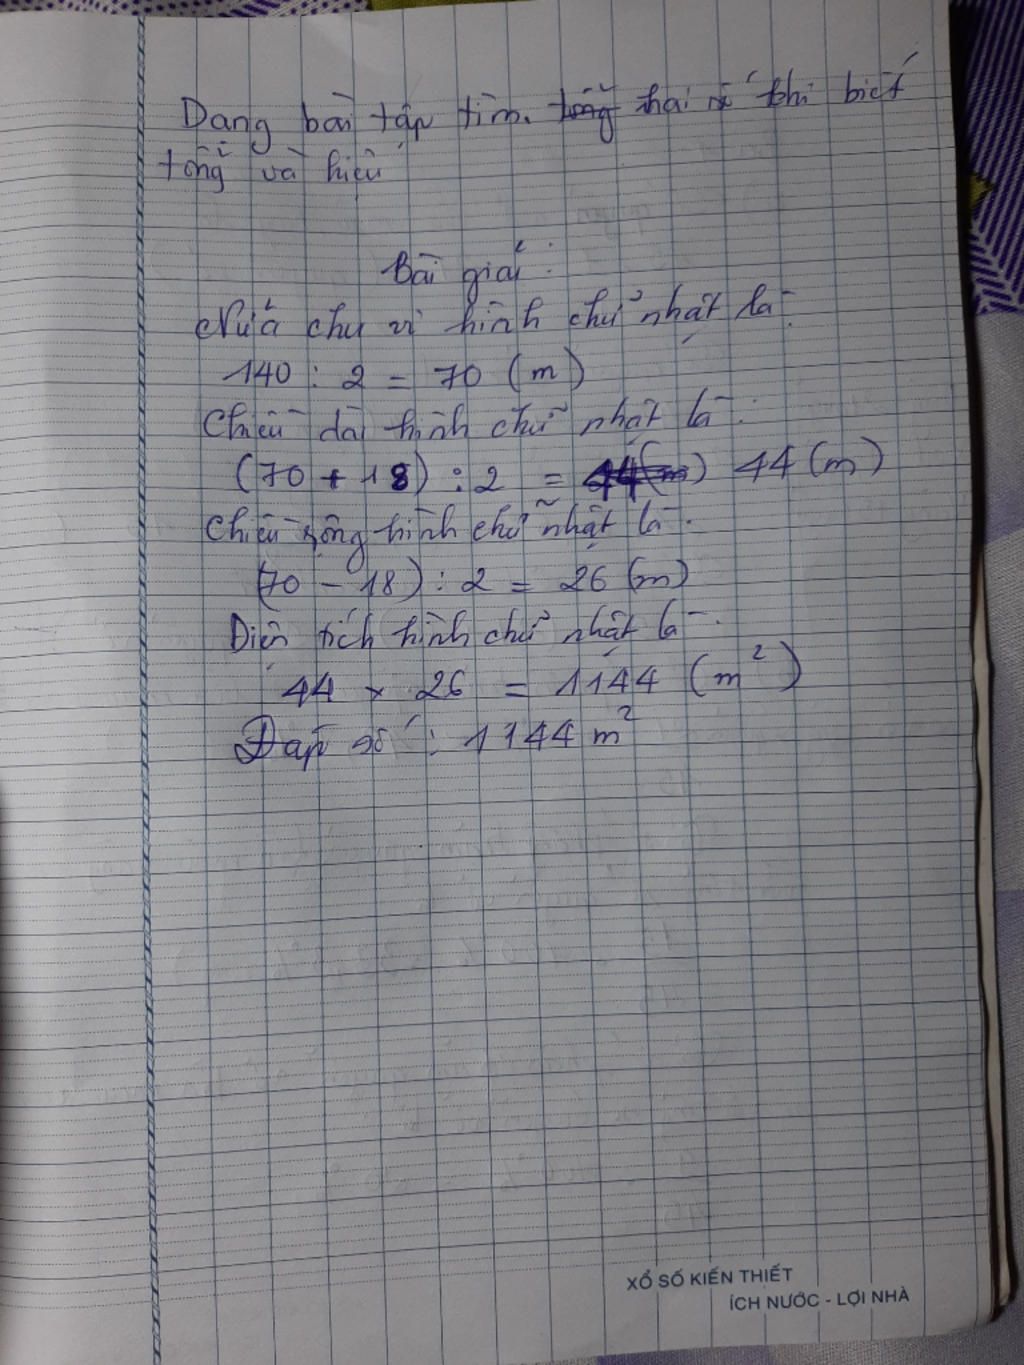 Dạng bài tập tìm tổng hai số khi biết
tổng và hiệu
Bài giải:
Nửa chu vi hình chữ nhật là:
140 : 2 = 70 (m)
Chiều dài hình chữ nhật là:
(70 + 18) : 2 = 44 (m) 44 (m)
Chiều rộng hình chữ nhật là:
(70 - 18) : 2 = 26 (m)
Diện tích hình chữ nhật là:
44 x 26 = 1144 (m²)
Đáp số : 1144 m²
XỔ SỐ KIẾN THIẾT
ÍCH NƯỚC - LỢI NHÀ